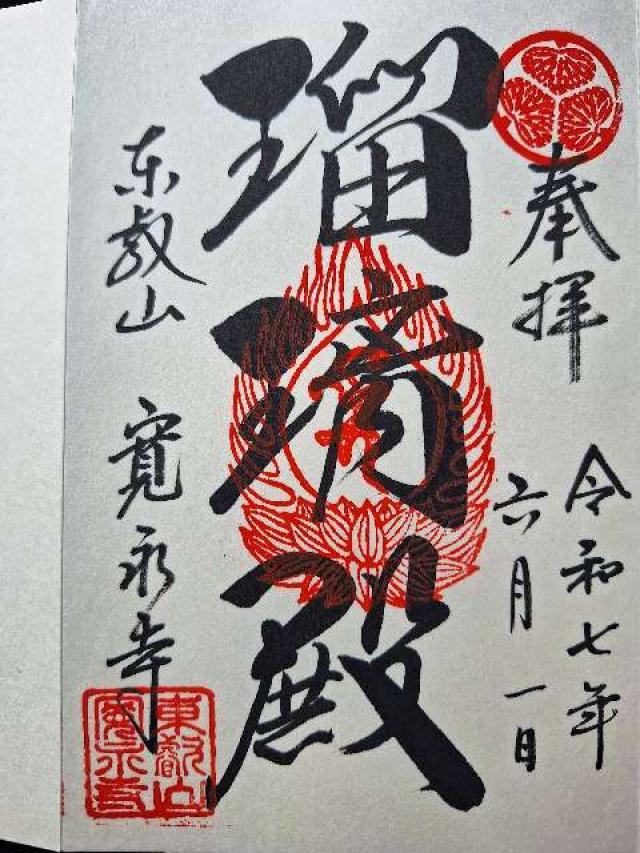 奉拝
令和七年
六月一日
瑠璃殿
東叡山 寛永寺
東叡山
寛永寺